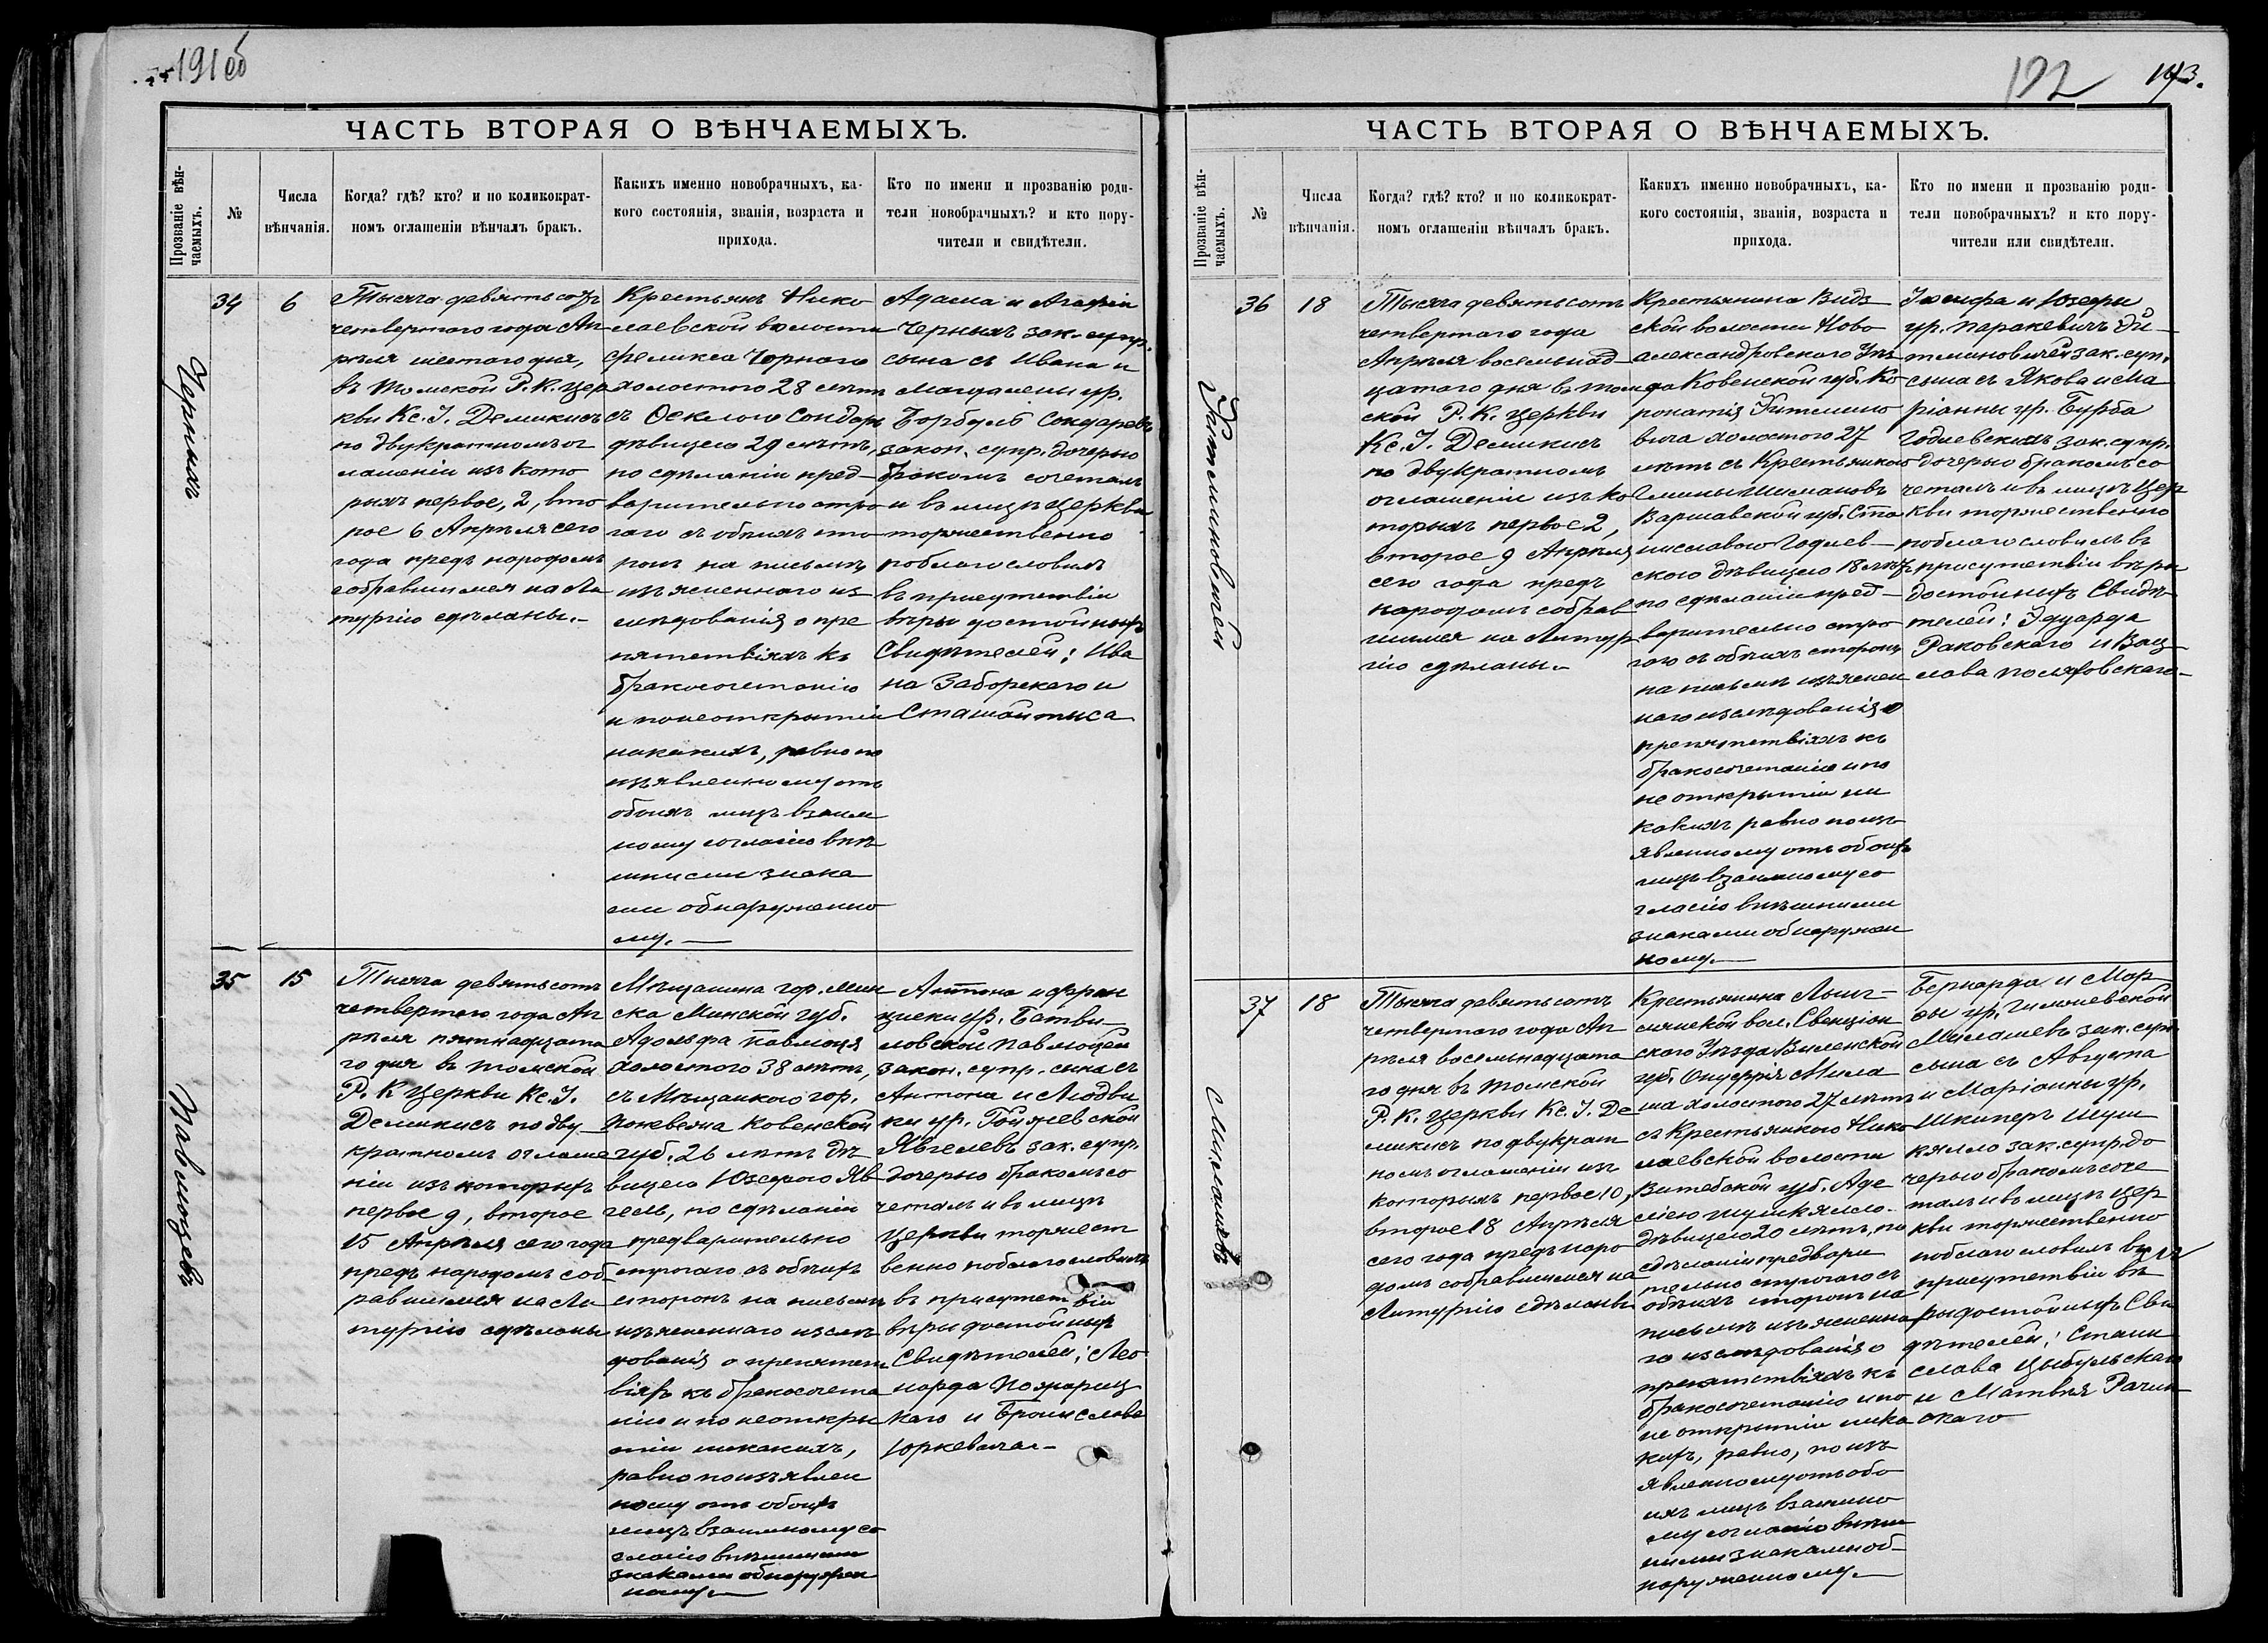 191 об
ЧАСТЬ ВТОРАЯ О ВѢНЧАЕМЫХЪ.
Прозваніе вѣн-
чаемыхъ.
№
Числа
вѣнчанія.
Когда? гдѣ? кто? и по коликократ-
номъ оглашеніи вѣнчалъ бракъ.
Какихъ именно новобрачныхъ, ка-
кого состоянія, званія, возраста и
прихода.
Кто по имени и прозванію роди-
тели новобрачныхъ? и кто пору-
чители и свидѣтели.
Черныхъ
34
6
Тысяча девятьсотъ
четвертаго года Ап
рѣля шестаго дня,
въ Томской Р. К. цер
кви Кс. І. Демикисъ
по двукратномъ ог
лашеніи изъ кото
рыхъ первое, 2, вто
рое 6 Апрѣля сего
года предъ народомъ
собравшимся на Ли
тургію сдѣланы.-
Крестьянъ Нико
лаевской волости
Феликса Чорнаго
холостого 28 лѣтъ
съ
дѣвицею 29 лѣтъ,
по сдѣланіи пред-
варительно стро
гаго съ обѣихъ сто
ронъ на письмѣ
изъясненнаго из
слѣдованія о пре
пятствіяхъ къ
бракосочетанію
и по неоткрытіи
никакихъ, равно по
изъявленному отъ
обоихъ лицъ взаим
ному согласію внѣ
шними знака
ми обнаруженно
му.—
Адама и Агафіи
Черныхъ зак. супр.
сына съ Ивана и
Магдалены ур.
закон. супр. дочерью
бракомъ сочеталъ
и въ лицѣ церкви
торжественно
поблагословилъ
въ присутствіи
вѣры достойныхъ
Свидѣтелей: Ива
на Заборскаго и
Павлюцевъ
35
15
Тысяча девятьсотъ
четвертаго года Ап
рѣля пятнадцата
го дня въ Томской
Р. К. церкви Кс. І.
Демикисъ по дву
кратномъ оглаше
ніи изъ которыхъ
первое 9, второе
15 Апрѣля сего года
предъ народомъ соб
равшимся на Ли
тургію сдѣланы
Мѣщанина гор. Мин
ска Минской губ.
Адольфа Павлюця
холостого 38 лѣтъ,
съ Мѣщанкою гор.
Поневежа Ковенской
губ. 26 лѣтъ дѣ
вицею Юзефою Яв
гель, по сдѣланіи
предварительно
строгаго съ обѣихъ
сторонъ на письмѣ
изъясненнаго изслѣ
дованія о препятст
віяхъ къ бракосочета
нію и по неоткры
тіи никакихъ,
равно по изъявлен
ному отъ обоихъ
лицъ взаимному со
гласію внѣшними
знаками обнаружен
ному.—
Антона и Фран
циски ур.
Павлюцевъ
закон. супр. сына съ
Антона и Людви
ки ур.
Явгелевъ зак. супр.
дочерью бракомъ со
четалъ и въ лицѣ
церкви торжест
венно поблагословилъ
въ присутствіи
вѣры достойныхъ
Свидѣтелей: Лео
нарда Пожариц
каго и Бронислава
Юркевича.-
192
ЧАСТЬ ВТОРАЯ О ВѢНЧАЕМЫХЪ.
Прозваніе вѣн-
чаемыхъ.
№
Числа
вѣнчанія.
Когда? гдѣ? кто? и по коликократ-
номъ оглашеніи вѣнчалъ бракъ.
Какихъ именно новобрачныхъ, ка-
кого состоянія, званія, возраста и
прихода.
Кто по имени и прозванію роди-
тели новобрачныхъ? и кто пору-
чители или свидѣтели.
36
18
Тысяча девятьсотъ
четвертаго года
Апрѣля восемьнад
цатаго дня въ Том
ской Р. К. церкви
Кс. І. Демикисъ
по двукратномъ
оглашеніи изъ ко
торыхъ первое 2,
второе 9 Апрѣля
сего года предъ
народомъ собрав
шимся на Литур
гію сдѣланы.-
Крестьянина Видз
ской волости Ново
александровского Уѣз
да Ковенской губ. Ко
вича холостого 27
лѣтъ съ Крестьянкою
Варшавской губ. Ста
ниславою Годлев
скою дѣвицею 18 лѣтъ,
по сдѣланіи пред-
варительно стро
гаго съ обѣихъ сторонъ
на письмѣ изъяснен
наго изслѣдованія о
препятствіяхъ къ
бракосочетанію и по
неоткрытіи ни
какихъ равно по изъ
явленному отъ обоихъ
лицъ взаимному со
гласію внѣшними
знаками обнаружен
ному.—
Іосифа и Юзефы
зак. суп.
сына съ Якова и Ма
ріанны ур. Бурба
Годлевскихъ зак. супр.
дочерью бракомъ со
четалъ и въ лицѣ Цер
кви торжественно
поблагословилъ въ
присутствіи вѣры
достойныхъ Свидѣ
телей: Эдуарда
Раковскаго и Вац
лава
Милашъ
37
18
Тысяча девятьсотъ
четвертаго года Ап
рѣля восемьнадцата
го дня въ Томской
Р. К. церкви Кс. І. Де
микисъ по двукрат
номъ оглашеніи изъ
которыхъ первое 10,
второе 18 Апрѣля
сего года предъ наро
домъ собравшимся на
Литургію сдѣланы
Крестьянина
вол. Свенціон
скаго Уѣзда Виленской
губ. Онуфрія Мила
ша холостого 27 лѣтъ
съ Крестьянкою Нико
лаевской волости
Витебской губ. Аде
лією
дѣвицею 20 лѣтъ, по
сдѣланіи предвари
тельно строгаго съ
обѣихъ сторонъ на
письмѣ изъясненна
го изслѣдованія о
препятствіяхъ къ
бракосочетанію и по
неоткрытіи ника
кихъ, равно, по изъ
явленному отъ обо
ихъ лицъ взаимно
му согласію внѣш
ними знаками об-
наруженному.—
Бернарда и Мар
ты ур.
Милашевъ зак. супр.
сына съ Августа
и Маріанны ур.
зак. супр. до
черью бракомъ соче
талъ и въ лицѣ цер
кви торжественно
поблагословилъ въ
присутствіи вѣ
ры достойныхъ Сви
дѣтелей: Стани
слава Цыбульскаго
и Матвѣя